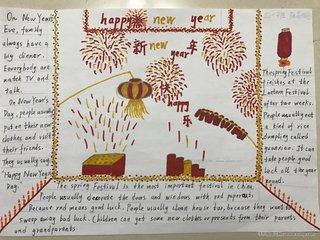 happy new year
On New Year's
Eve, family
always have a
big dinner.
Everybody are
match TV and
talk.
On New Year's
Day, people usually
put on their new
clothes and visit
their friends.
They usually say
"Happy New Year's
Day.
新 new 年
year
快
happy
乐
The spring Festival
finishes at the
Lantern Festival
after two weeks.
People usually eat
a kind of rice
dumpling called
yuanxiao. It can
take people good
luck all the year
round.
The spring Festival is the most important festival in China.
People usually decorate the doors and windows with red papercuts.
Because red means good luck. People usually clean house too, because they want to
sweep away bad luck. Children can get some new clothes or presents from their parents
and grandparents